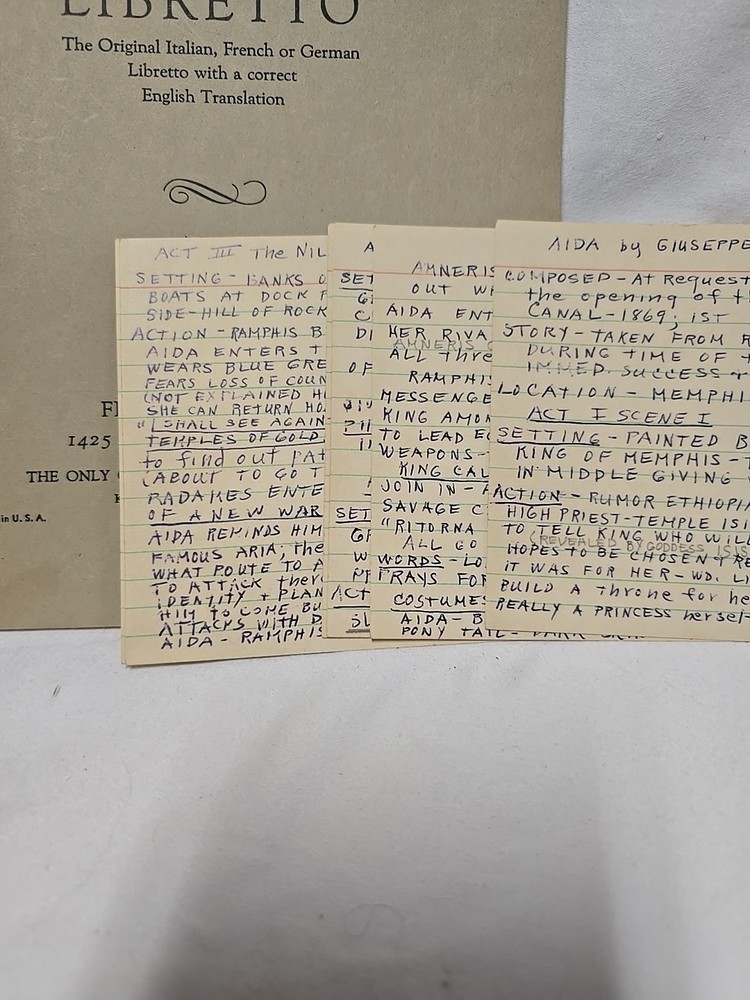 LIBRETTO
The Original Italian, French or German
Libretto with a correct
English Translation
1425
THE ONLY
in U.S.A.
ACT III The NIL
SETTING - BANKS O
BOATS AT DOCK F
SIDE-HILL OF ROCK
ACTION - RAMPHIS B
AIDA ENTERS T
WEARS BLUE GRE
FEARS LOSS OF COUN
(NOT EXPLAINED H
SHE CAN RETURN HO
"I SHALL SEE AGAIN
TEMPLES OF GOLD
to find out PAT
(ABOUT TO GO T
RADAMES ENTE
OF A NEW WAR
AIDA REMINDS HIM
FAMOUS ARIA; The
WHAT ROUTE TO A
TO ATTACK there
IDENTITY + PLAN
HIM TO COME BU
ATTACKS WITH D
AIDA - RAMPHIS
A
SET
G
C
DI
OF
SET
G
W
ACT
SL
AMNERIS
OUT W
AIDA ENT
HER RIVA
AMNERIS
ALL thre
RAMPHIS
MESSENGE
KING AMON
TO LEAD E
WEAPONS -
KING CAL
JOIN IN -
SAVAGE C
"RITORNA
ALL GO
WORDS - LO
PRAYS FOR
COSTUMES
AIDA - B
PONY TAIL -
AIDA by GIUSEPPE
COMPOSED - AT Request
the opening of t
CANAL - 1869; 1ST
STORY - TAKEN FROM
DURING TIME OF
IMMED. SUCCESS
LOCATION - MEMPHI
ACT I SCENE I
SETTING - PAINTED B
KING OF MEMPHIS - T
IN MIDDLE GIVING
ACTION - RUMOR ETHIOPIA
HIGH PRIEST-TEMPLE ISI
TO TELL KING WHO WILL
(REVEALED BY GODDESS ISIS
HOPES TO BE CHOSEN + RE
IT WAS FOR HER - WD. LI
BUILD A throne for he
REALLY A PRINCESS herself